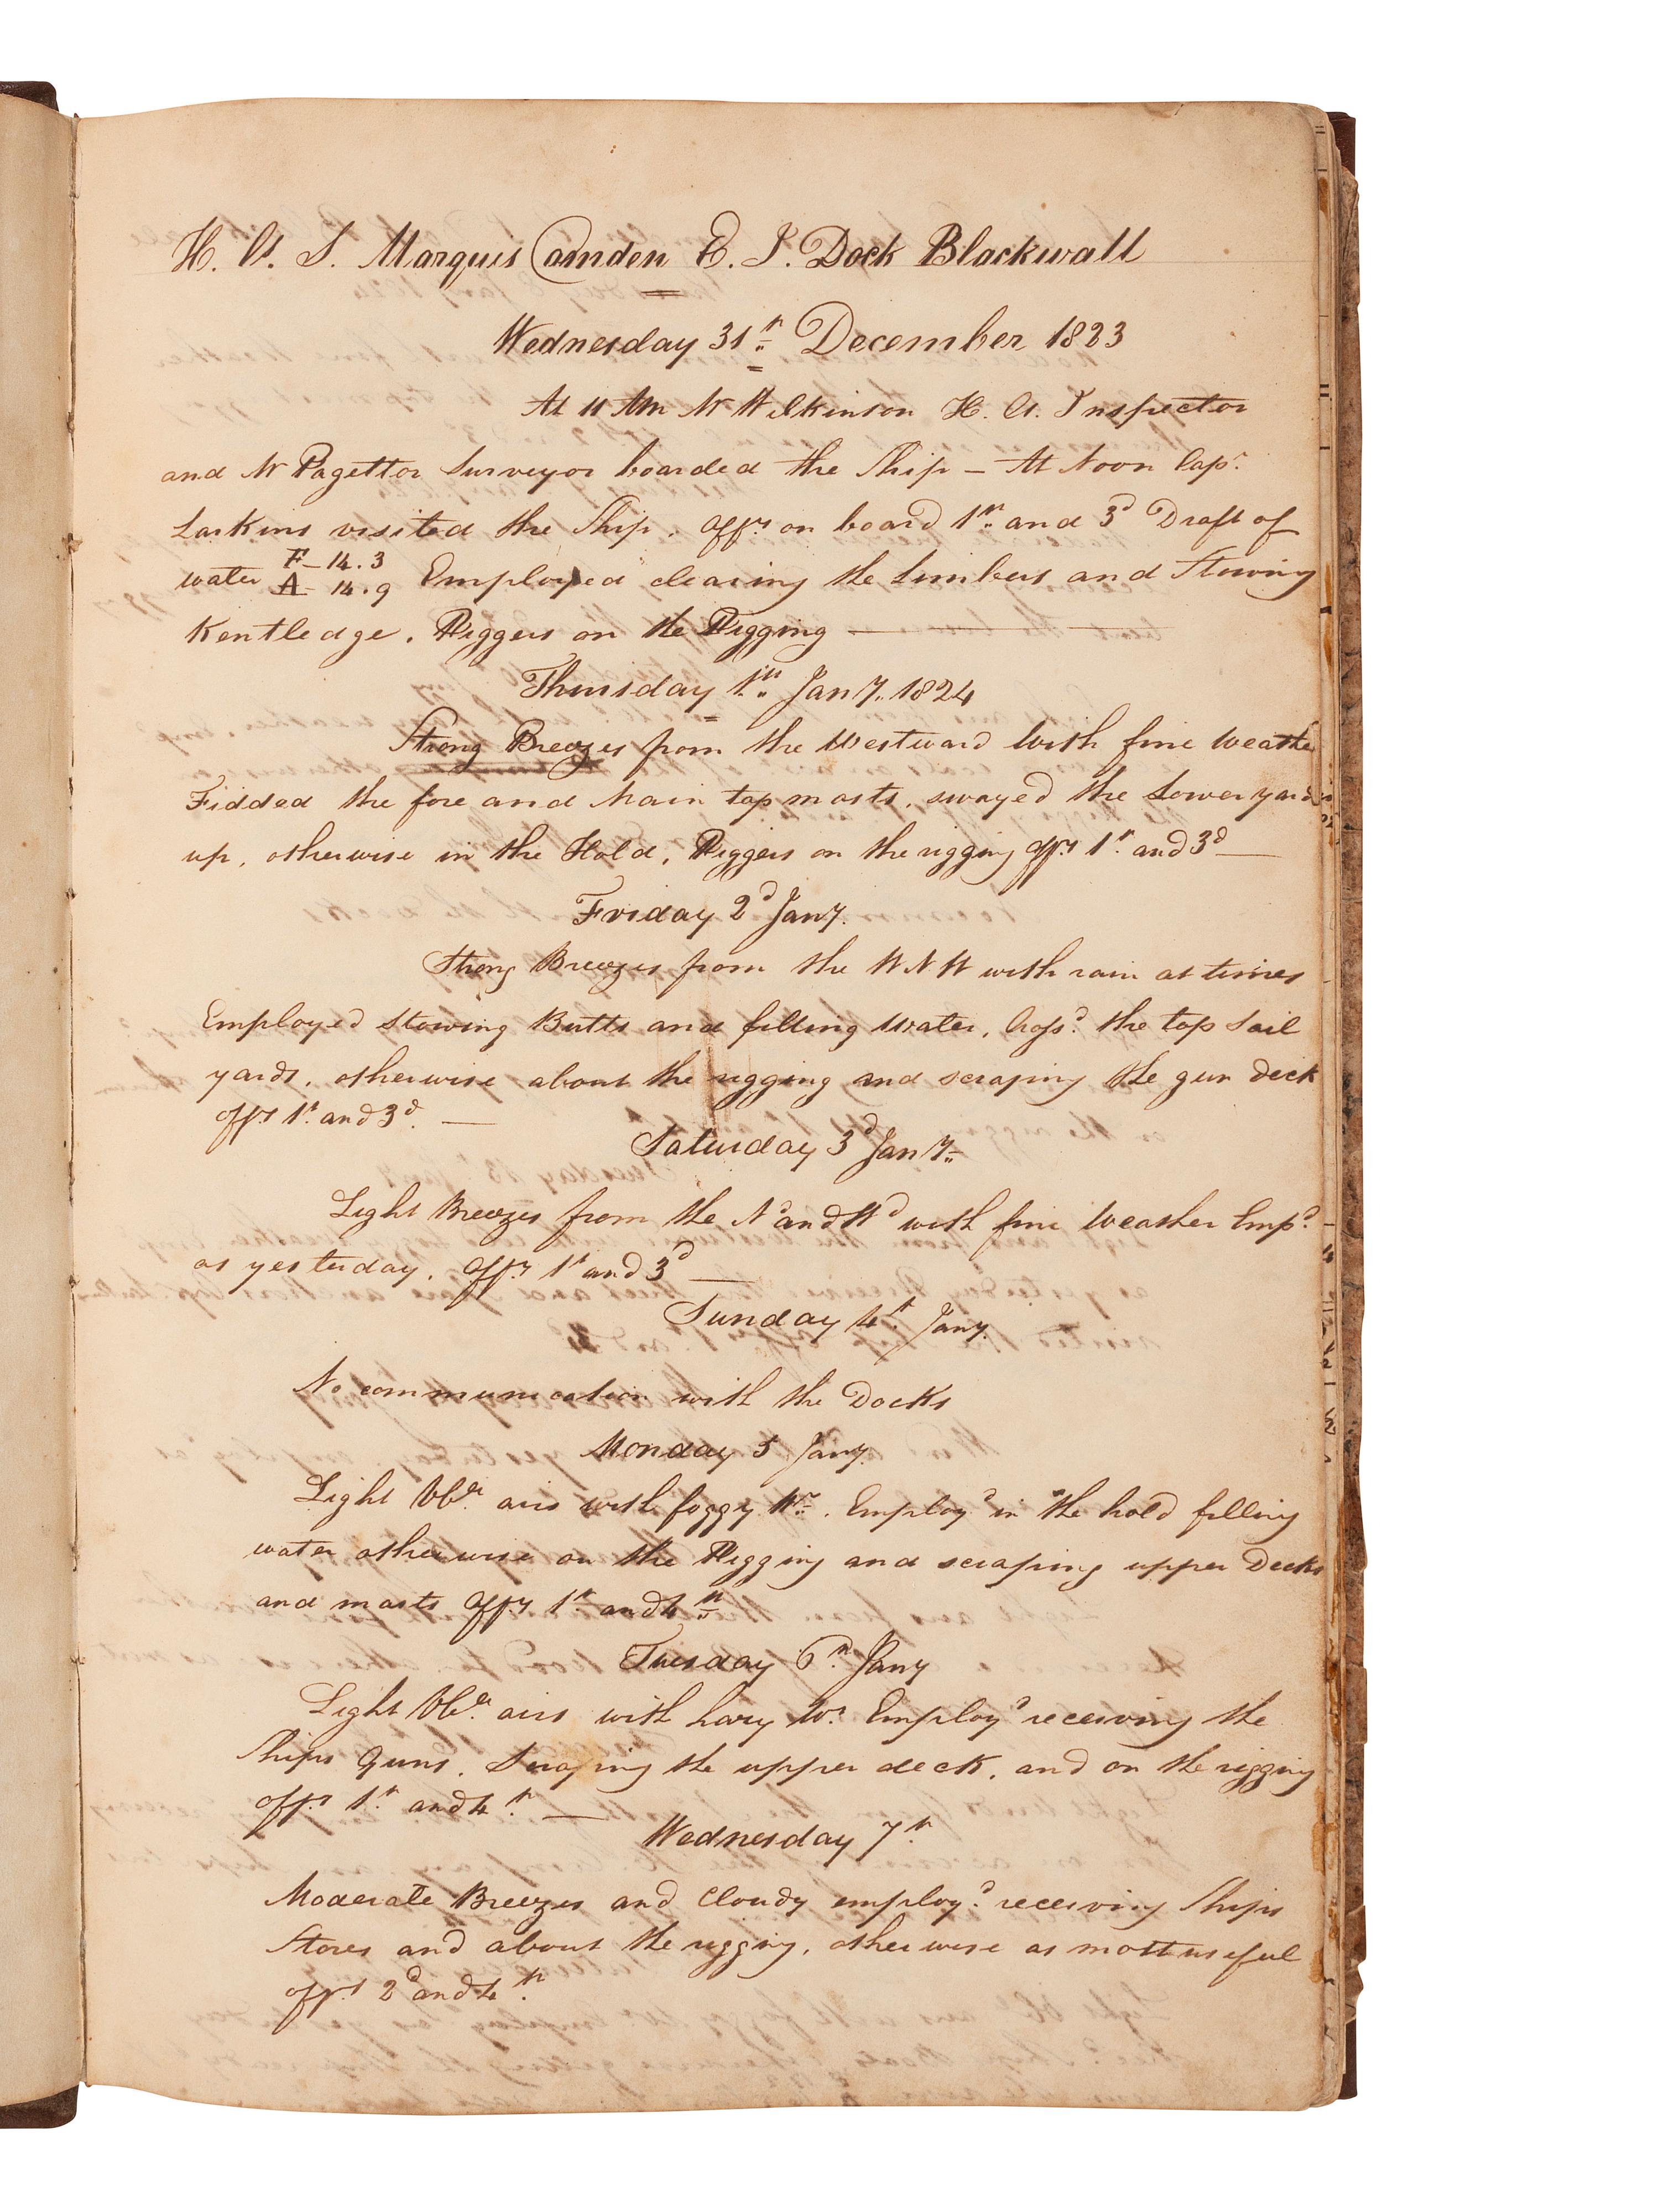 H. C. S. Marquis Camden E. I. Dock Blackwall
Wednesday 31st December 1823
At 11 Am Mr Wilkinson H. C. Inspector
and Mr Pagettor Surveyor boarded the Ship – At Noon Capt.
Larkins visited the Ship. Offrs on board 1st and 3d Draft of
water F – 14.3 A – 14.9 Employed clearing the limbers and Stowing
Kentledge. Riggers on the Rigging —
Thursday 1st Jany. 1824
Strong Breezes from the Westward with fine weather
Fidded the fore and Main top masts, swayed the Lower yards
up, otherwise in the Hold, Riggers on the rigging offrs 1st and 3d —
Friday 2d Jany.
Strong Breezes from the W N W with rain at times
Employed Stowing Butts and filling Water, Cross'd the top Sail
yards, otherwise about the rigging and scraping the gun deck
offrs 1st and 3d. —
Saturday 3d Jany.
Light Breezes from the Nd and Wd with fine Weather Empd.
as yesterday. Offrs 1st and 3d —
Sunday 4th Jany.
No communication with the Docks
Monday 5 Jany.
Light Vble. airs with foggy Wr. Employd in the hold filling
water otherwise on the Rigging and scraping upper Decks
and masts Offrs 1st and 4th
Tuesday 6th Jany
Light Vble. airs with hazy Wr. Employd receiving the
Ships Guns. Scraping the upper deck, and on the rigging
offrs 1st and 4th. —
Wednesday 7th.
Moderate Breezes and Cloudy employd. receiving Ships
Stores and about the rigging, otherwise as most useful
offrs 2d and 4th.